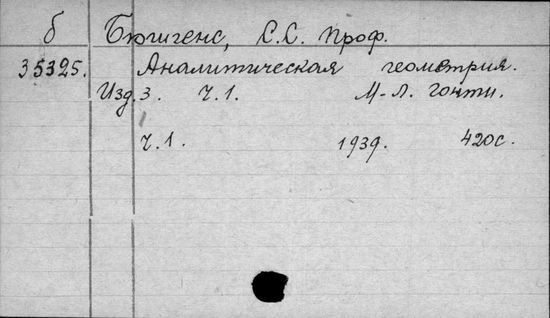 б Бюшгенс, С.С. Проф.
35325. Аналитическая геометрия.
Изд. 3. Ч.1. М-Л. Гонти.
Ч.1. 1939. 420с.